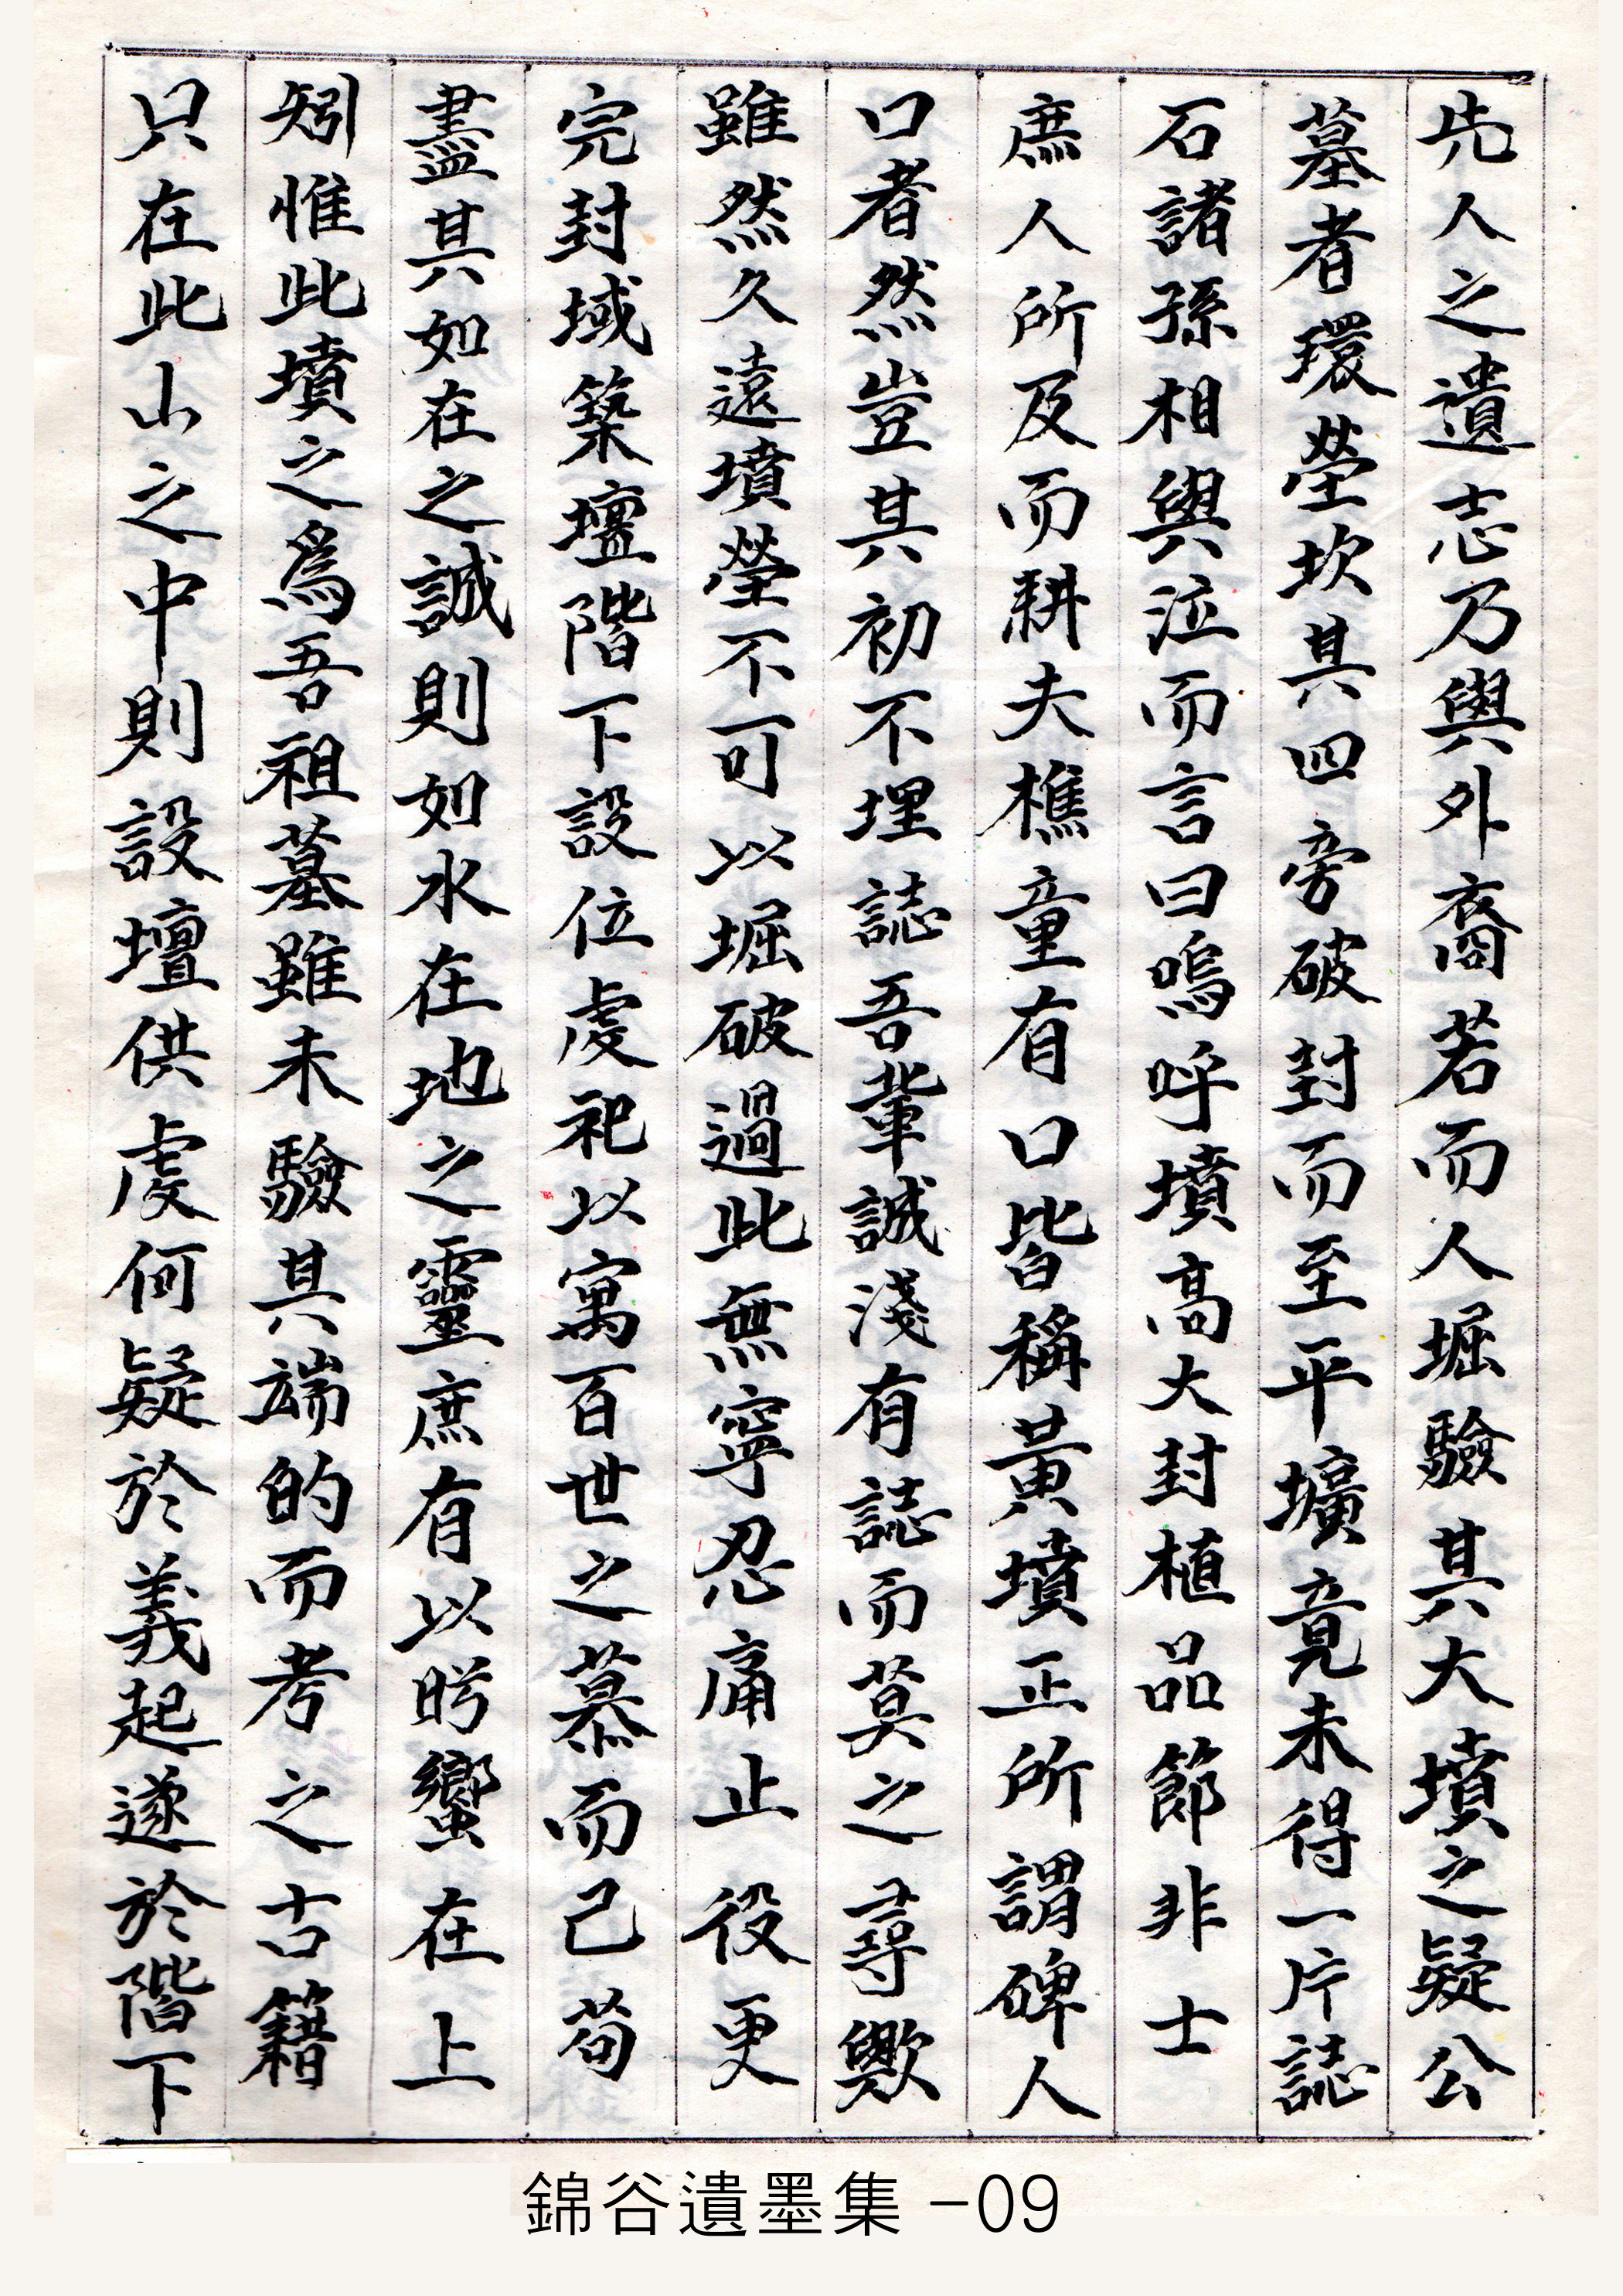 先人之遺志乃與外裔若而人堀驗其大墳之疑公
墓者環塋坎其四旁破封而至平壙竟未得一片誌
石諸孫相與泣而言曰嗚呼墳高大封植品節非士
庶人所及而耕夫樵童有口皆稱黃墳正所謂碑人
口者然豈其初不埋誌吾輩誠淺有誌而莫之尋歟
雖然久遠墳塋不可以堀破過此無寧忍痛止役更
完封域築壇階下設位處祀以寓百世之慕而已苟
盡其如在之誠則如水在地之靈庶有以肹蠁在上
矧惟此墳之爲吾祖墓雖未驗其端的而考之古籍
只在此山之中則設壇供虔何疑於義起遂於階下
錦谷遺墨集 -09